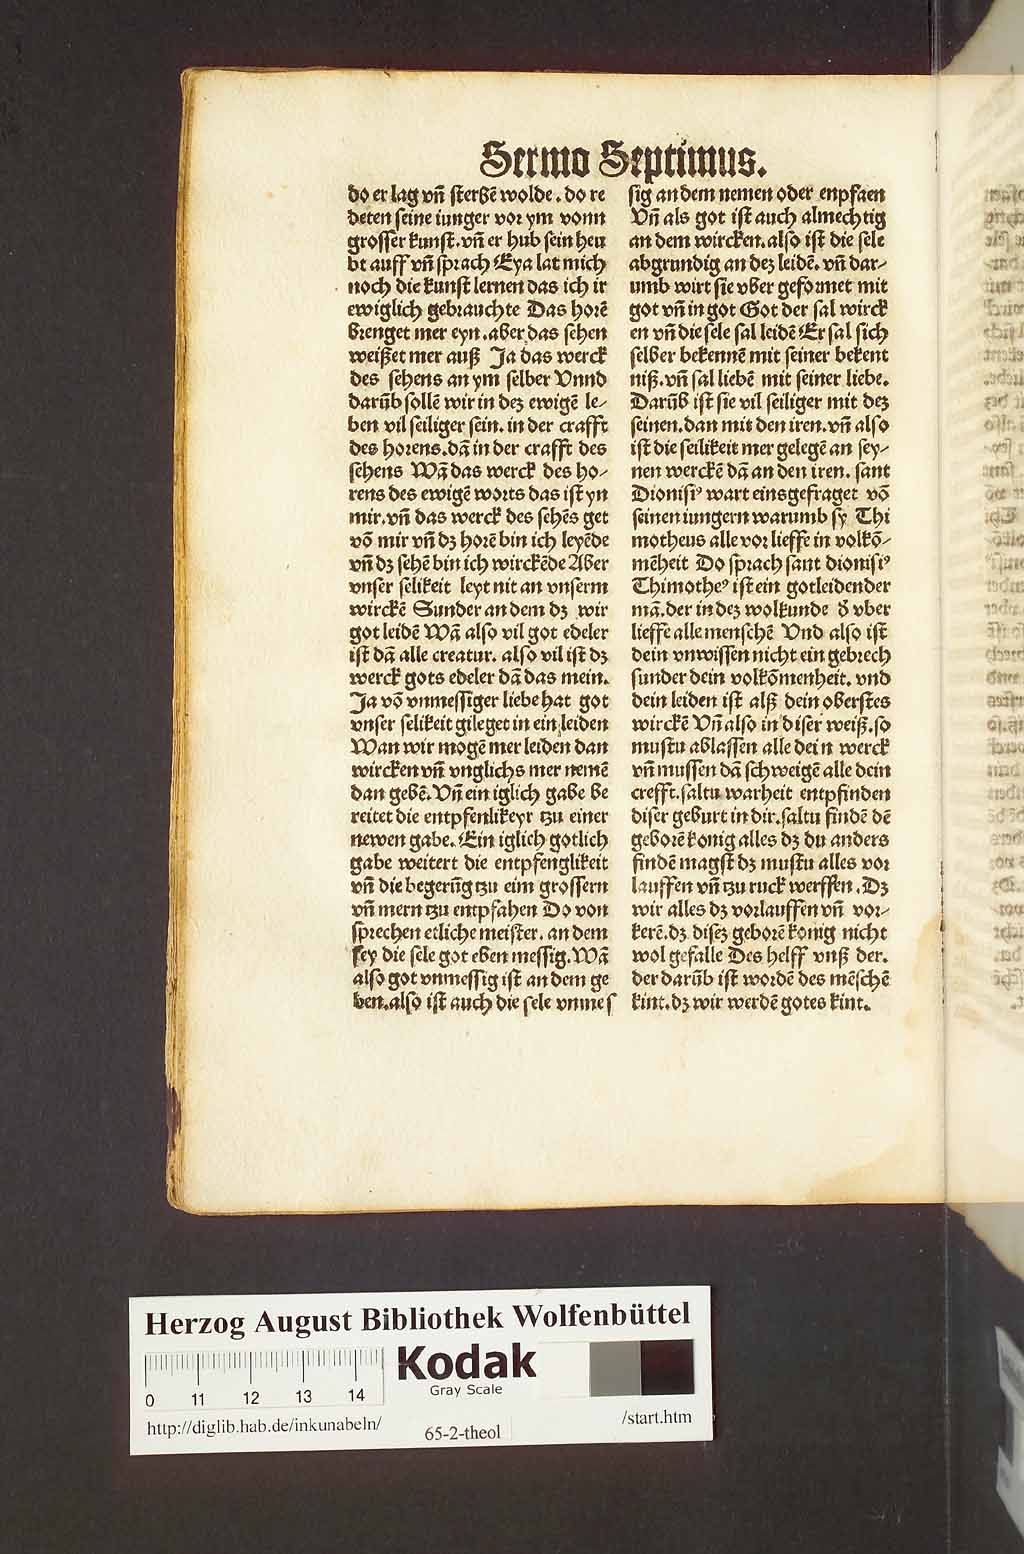 Sermo Septimus.
do er lag vñ sterbē wolde. do re
deten seine iunger vor ym vonn
grosser kunst. vñ er hub sein heu
bt auff vñ sprach Eya lat mich
noch die kunst lernen das ich ir
ewiglich gebrauchte Das horē
brenget mer eyn. aber das sehen
weißet mer auß Ja das werck
des sehens an ym selber Vnnd
darūb sollē wir in dez ewigē le-
ben vil seiliger sein. in der crafft
des horens. dā in der crafft des
sehens Wā das werck des ho-
rens des ewigē worts das ist yn
mir. vñ das werck des sehēs get
vō mir vñ dz horē bin ich leyēde
vñ dz sehē bin ich wirckēde Aber
vnser selikeit leyt nit an vnserm
wirckē Sunder an dem dz wir
got leidē Wā also vil got edeler
ist dā alle creatur. also vil ist dz
werck gots edeler dā das mein.
Ja vō vnmessiger liebe hat got
vnser selikeit gileget in ein leiden
Wan wir mogē mer leiden dan
wircken vñ vnglichs mer nemē
dan gebē. Vñ ein iglich gabe be
reitet die entpfenlikeyr tzu einer
newen gabe. Ein iglich gotlich
gabe weitert die entpfenglikeit
vñ die begerūg tzu eim grossern
vñ mern tzu entpfahen Do von
sprechen etliche meister. an dem
sey die sele got eben messig. Wā
also got vnmessig ist an dem ge
ben. also ist auch die sele vnmes
sig an dem nemen oder enpfaen
Vñ als got ist auch almechtig
an dem wircken. also ist die sele
abgrundig an dez leidē. vñ dar-
umb wirt sie vber geformet mit
got vñ in got Got der sal wirck
en vñ die sele sal leidē Er sal sich
selber bekennē mit seiner bekent
niß. vñ sal liebē mit seiner liebe.
Darūb ist sie vil seiliger mit dez
seinen. dan mit den iren. vñ also
ist die seilikeit mer gelegē an sey-
nen werckē dā an den iren. sant
Dionisiꝰ wart eins gefraget vō
seinen iungern warumb sy Thi
motheus alle vor lieffe in volkō-
mēheit Do sprach sant dionisiꝰ
Thimotheꝰ ist ein gotleidender
mā. der in dez wolkunde d̕ vber
lieffe alle menschē Vnd also ist
dein vnwissen nicht ein gebrech
sunder dein volkōmenheit. vnd
dein leiden ist alß dein oberstes
wirckē Vñ also in diser weiß. so
mustu ablassen alle dein werck
vñ mussen dā schweigē alle dein
crefft. saltu warheit entpfinden
diser geburt in dir. saltu findē dē
geborē konig alles dz du anders
findē magst dz mustu alles vor
lauffen vñ tzu ruck werffen. Dz
wir alles dz vorlauffen vñ vor-
kerē. dz disez geborē konig nicht
wol gefalle Des helff vnß der.
der darūb ist wordē des mēschē
kint. dz wir werdē gotes kint.
Herzog August Bibliothek Wolfenbüttel
Kodak
Gray Scale
0 11 12 13 14
http://diglib.hab.de/inkunabeln/
65-2-theol
/start.htm